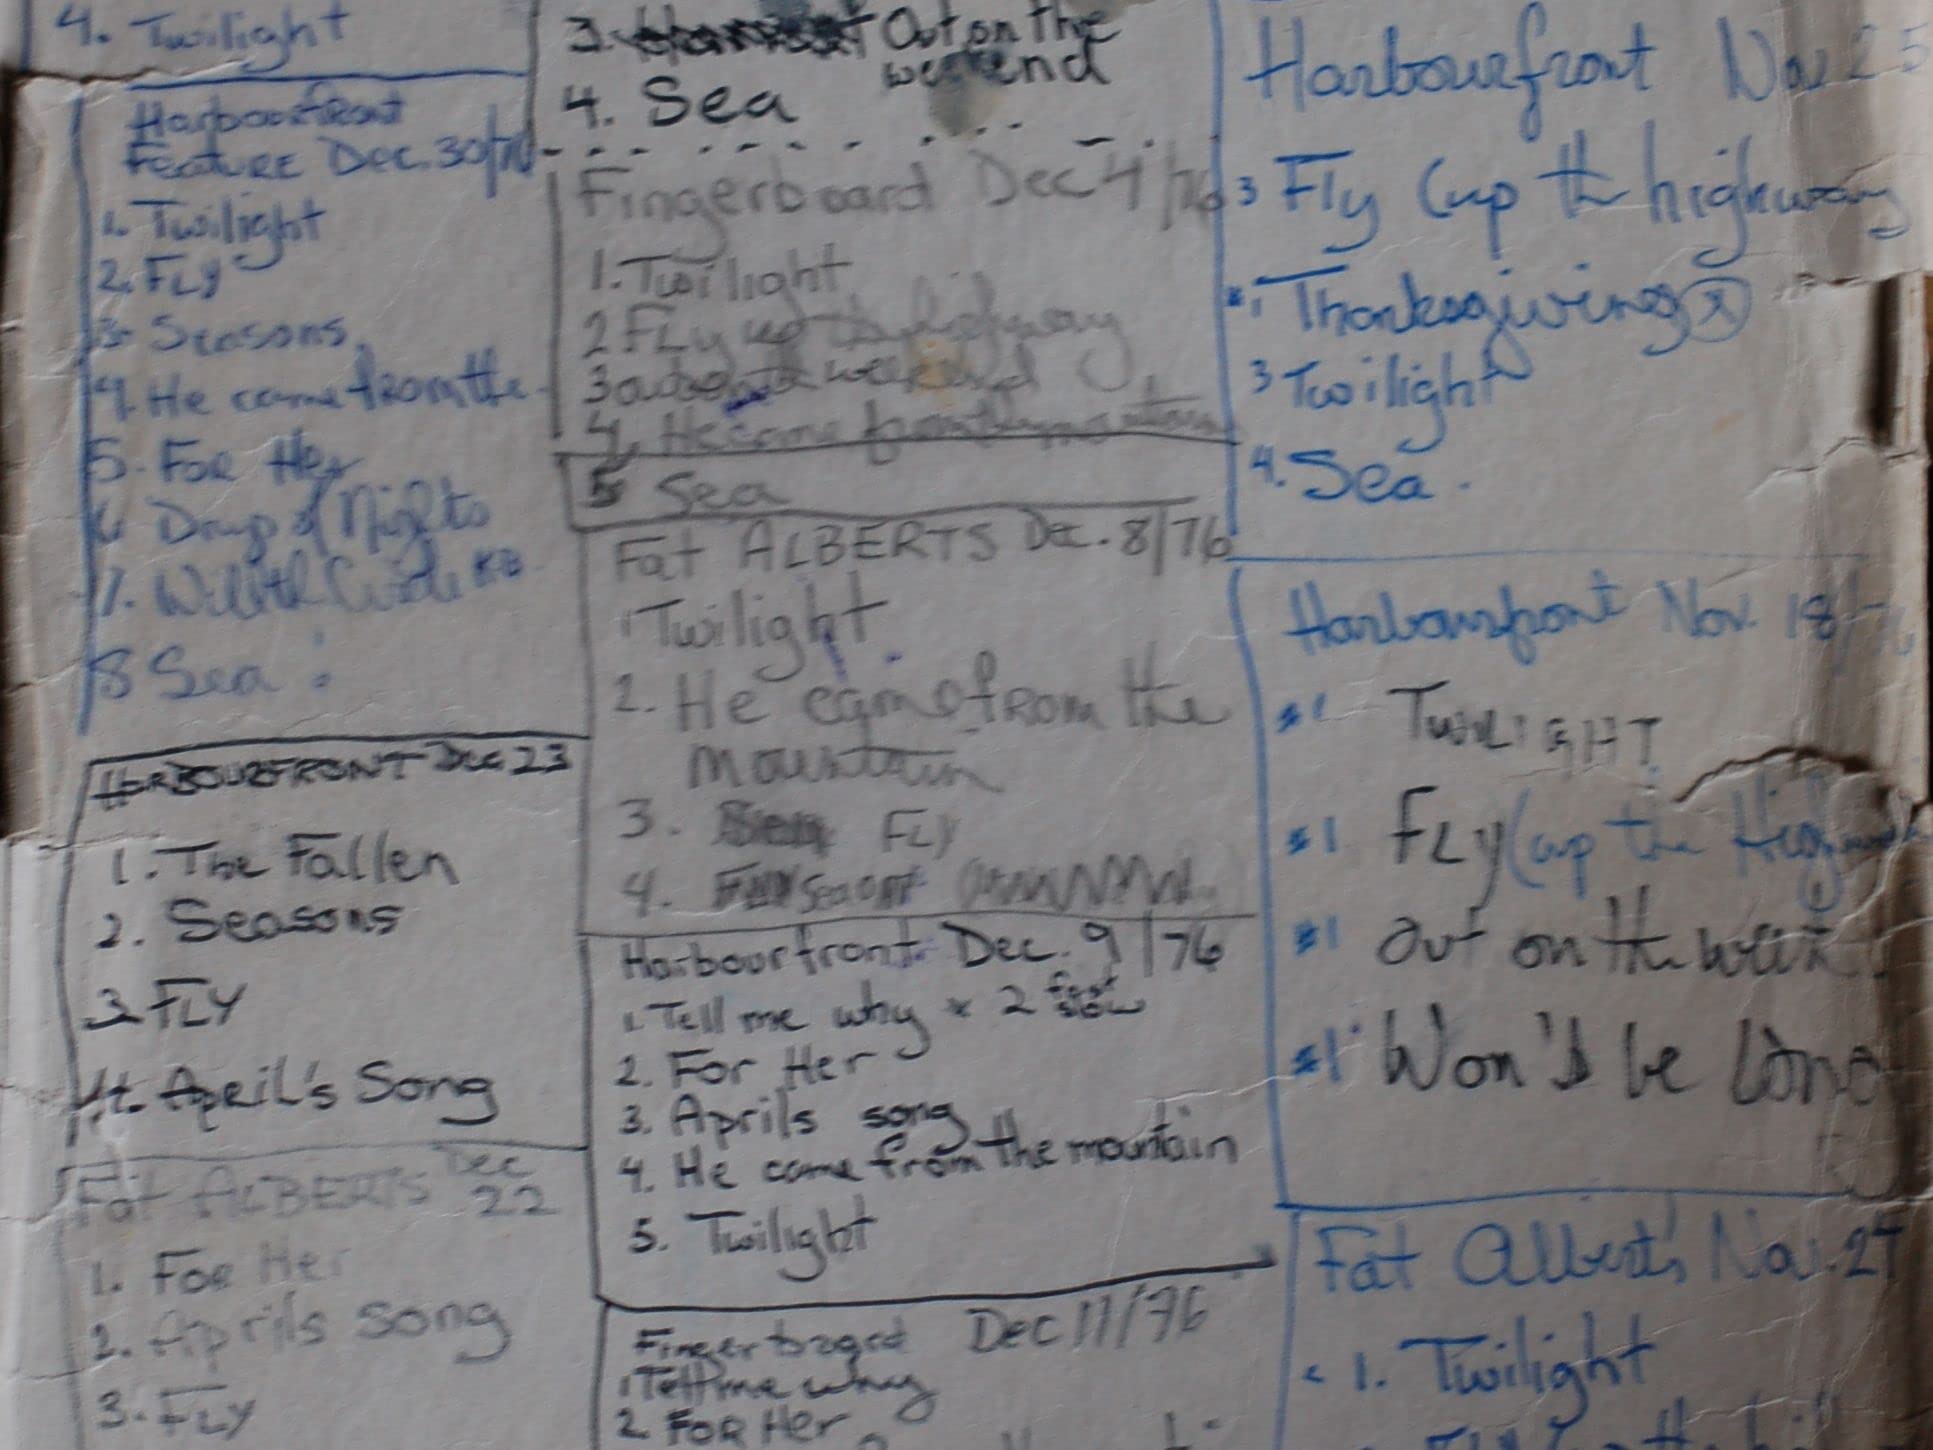 4. Twilight
Harbourfront
Feature Dec. 30/76
1. Twilight
2. FLY
3. Seasons
4. He came from the
5. For Her
6 Drug of Nights
7. Will the Circle
8 Sea
HARBOURFRONT Dec 23
1. The Fallen
2. Seasons
3. FLY
4. April's Song
Fat ALBERTS Dec
22
1. For Her
2. Aprils song
3. FLY
3. Out on the
weekend
4. Sea
Fingerboard Dec 4/76
1. Twilight
2 FLy up the highway
3 out on the weekend
4. He came from the mountain
5 Sea
Fat ALBERTS Dec. 8/76
1 Twilight
2. He came from the
mountain
3. Sea FLY
4.
Harbourfront Dec. 9/76
1. Tell me why x 2 fast
slow
2. For Her
3. Aprils song
4. He came from the mountain
5. Twilight
Fingerboard Dec 11/76
1 Tell me why
2. FOR Her
Harbourfront Nov 25
3 Fly (up the highway
#1 Thanksgiving
3 Twilight
4. Sea.
Harbourfront Nov. 18/76
#1 TWILIGHT
#1 FLY (up the High
#1 Out on the week
#1 Won't be long
Fat Albert's Nov. 27
1. Twilight